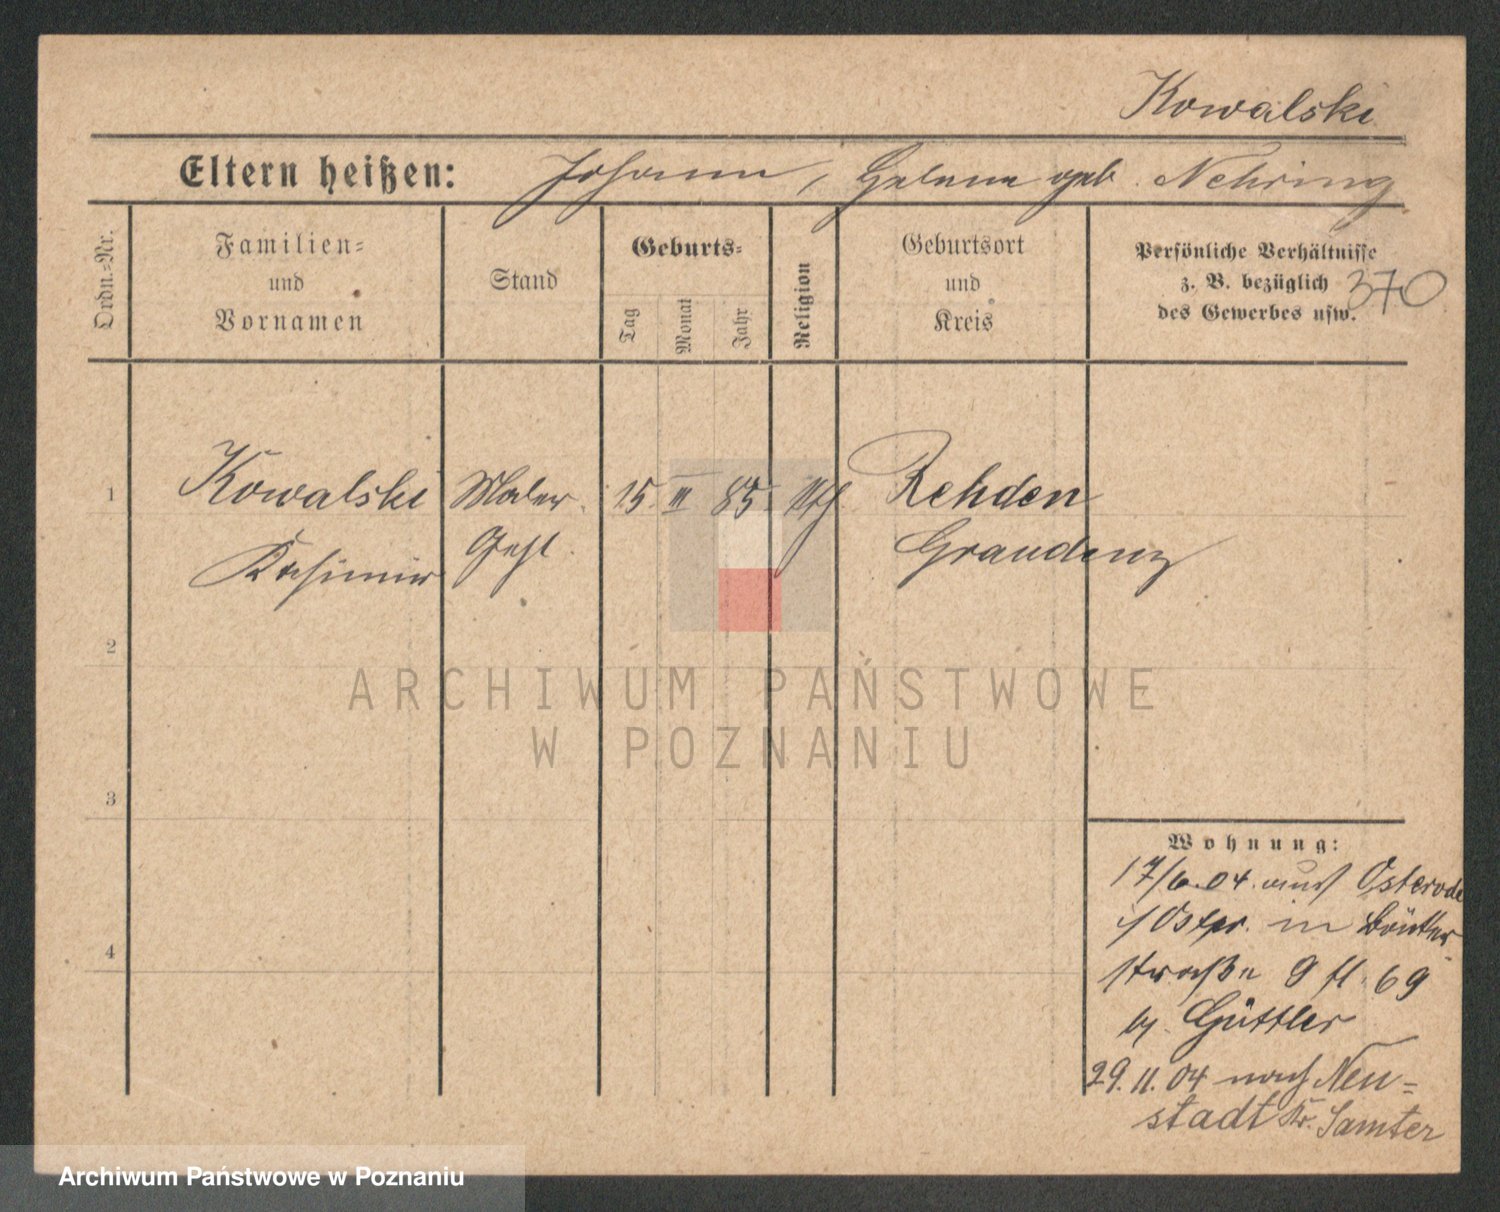 Kowalski
Eltern heißen: Johann, Helena geb. Nehring
Ordn.=Nr.
Familien=
und
Vornamen
Stand
Geburts=
Tag
Monat
Jahr
Religion
Geburtsort
und
Kreis
Persönliche Verhältnisse
z. B. bezüglich
des Gewerbes usw.
370
1
Kowalski Maler 15. III 85. kth. Rehden
Kasimir Geh. Graudenz
2
3
4
Wohnung:
17/6.04. aus Osterode
i/Ostpr. in
straße 9 69
b/. Güttler
29.11.04 nach Neu=
stadt Kr. Samter
ARCHIWUM PAŃSTWOWE
W POZNANIU
Archiwum Państwowe w Poznaniu